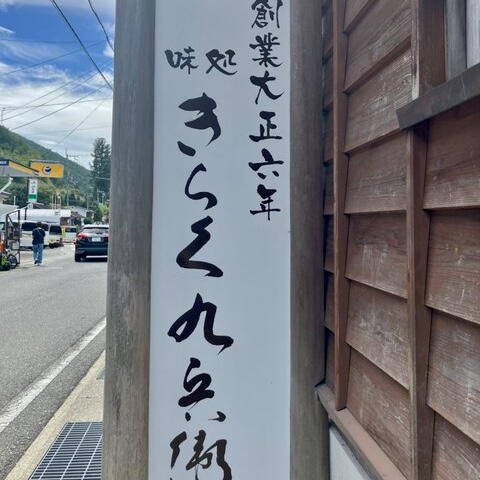 創業大正六年
味処
きらく九兵衛